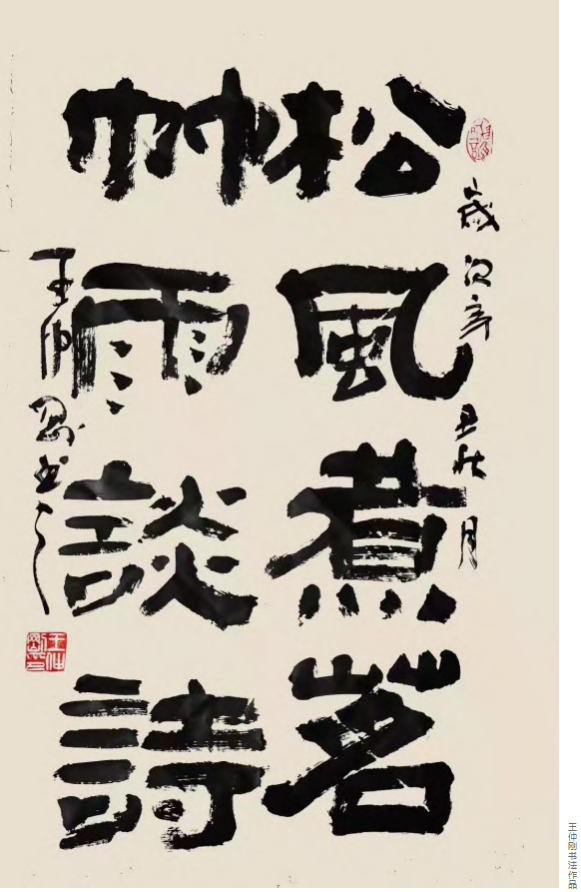 歲次辛丑秋月
松風煮茗
竹雨談詩
王仲剛书之
王仲剛印
王仲刚书法作品